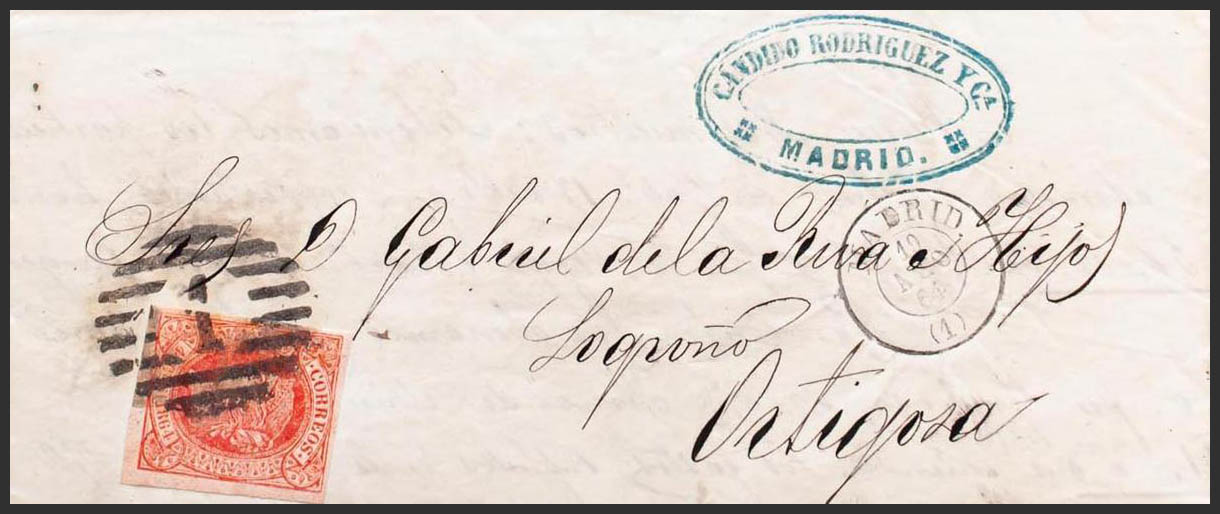 CANDIDO RODRIGUEZ Y Cᴬ
MADRID.
Sres D Gabriel de la Riva e Hijos
Logroño
Ortigosa
MADRID.
(1)
1
CORREOS.